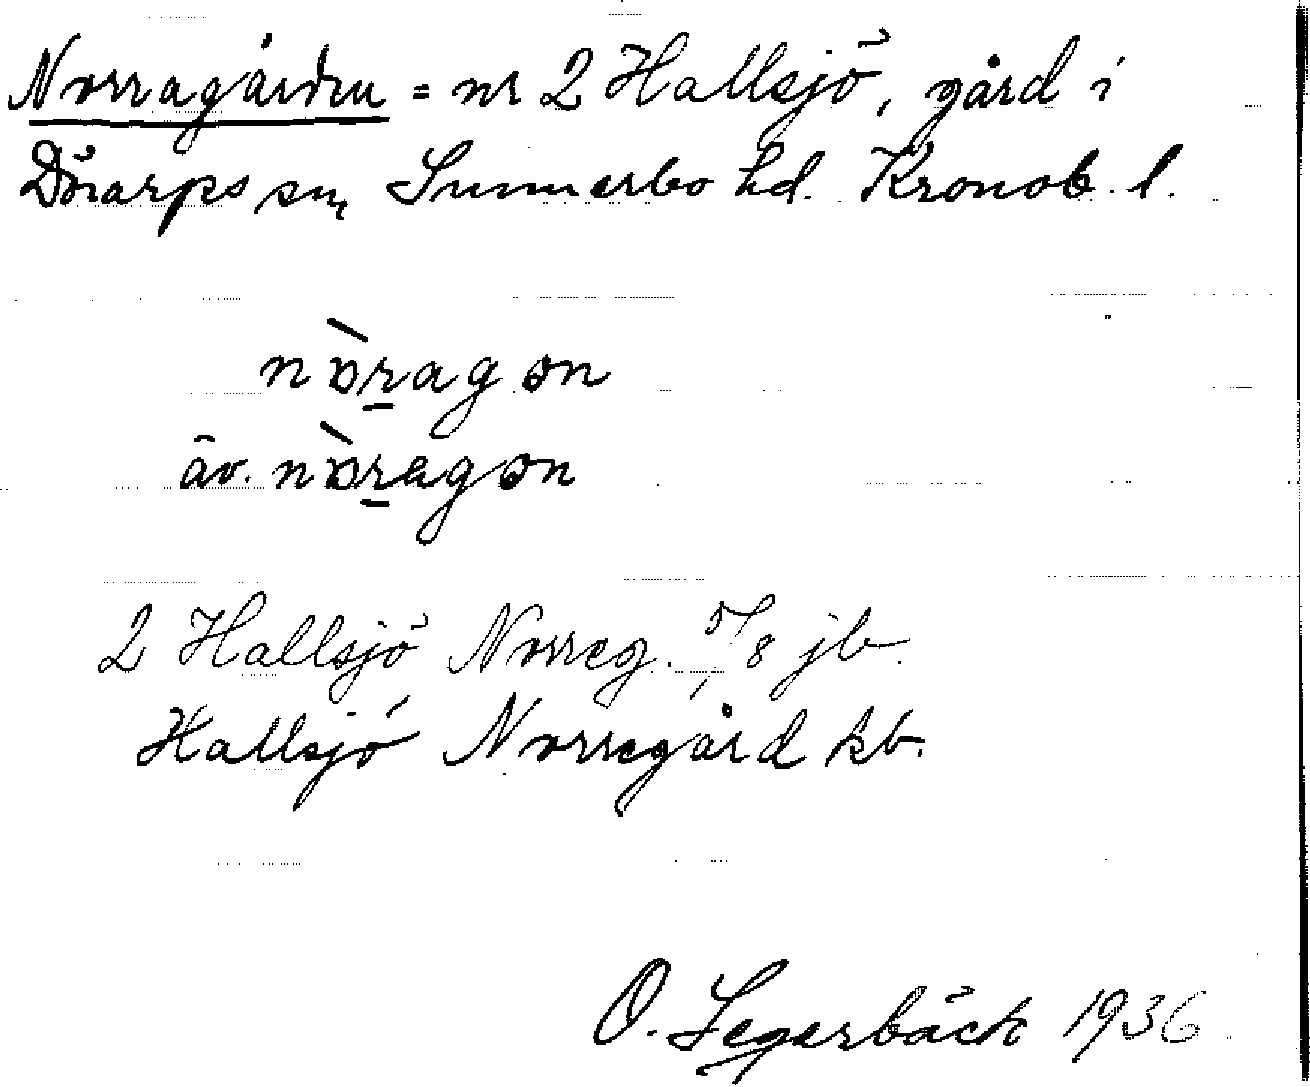 Norragården = nr 2 Hallsjö, gård i
Dörarps sn, Sunnerbo hd. Kronob. l.
nòragon
äv. nòragon
2 Hallsjö Norreg. 5/8 jb.
Hallsjö Norregård kb.
O. Segerbäck 1936